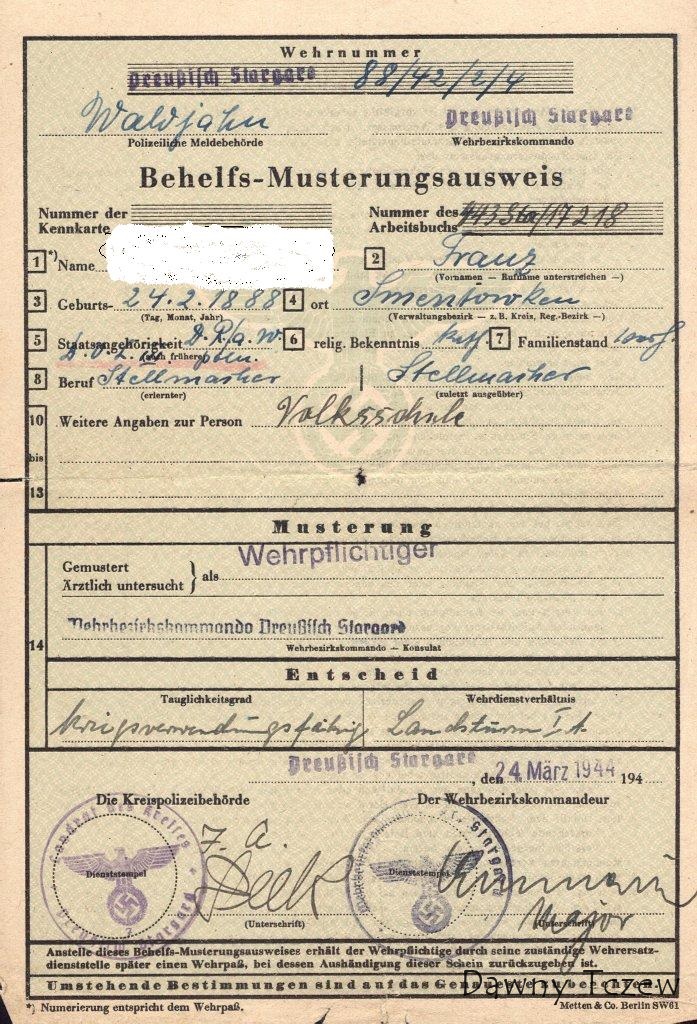 Wehrnummer
Preußisch Stargard 88/42/2/4
Waldjahn Preußisch Stargard
Polizeiliche Meldebehörde Wehrbezirkskommando
Behelfs-Musterungsausweis
Nummer der Kennkarte
Nummer des Arbeitsbuchs 17218
1 *) Name
2 Franz
(Vornamen — Rufname unterstreichen —)
3 Geburts- 24.2.1888 4 ort Smentowken
(Tag, Monat, Jahr) (Verwaltungsbezirk — z.B. Kreis, Reg.-Bezirk —)
5 Staatsangehörigkeit D.R./a.W. 6 relig. Bekenntnis kath. 7 Familienstand
D.V.L. (auch frühere)
8 Beruf Stellmacher | Stellmacher
(erlernter) (zuletzt ausgeübter)
10 Weitere Angaben zur Person Volksschule
bis
13
Musterung
Gemustert
Ärztlich untersucht } als Wehrpflichtiger
14 Wehrbezirkskommando Preußisch Stargard
Wehrbezirkskommando — Konsulat
Entscheid
Tauglichkeitsgrad Wehrdienstverhältnis
kriegsverwendungsfähig Landsturm I A.
Preußisch Stargard, den 24. März 1944 194
Die Kreispolizeibehörde Der Wehrbezirkskommandeur
Landrat des Kreises Preußisch Stargard
Dienststempel Dienststempel
J. A.
Major
(Unterschrift) (Unterschrift)
Anstelle dieses Behelfs-Musterungsausweises erhält der Wehrpflichtige durch seine zuständige Wehrersatz-
dienststelle später einen Wehrpaß, bei dessen Aushändigung dieser Schein zurückzugeben ist.
Umstehende Bestimmungen sind auf das Genaueste zu beachten.
Dawny Tczew
*) Numerierung entspricht dem Wehrpaß. Metten & Co. Berlin SW61